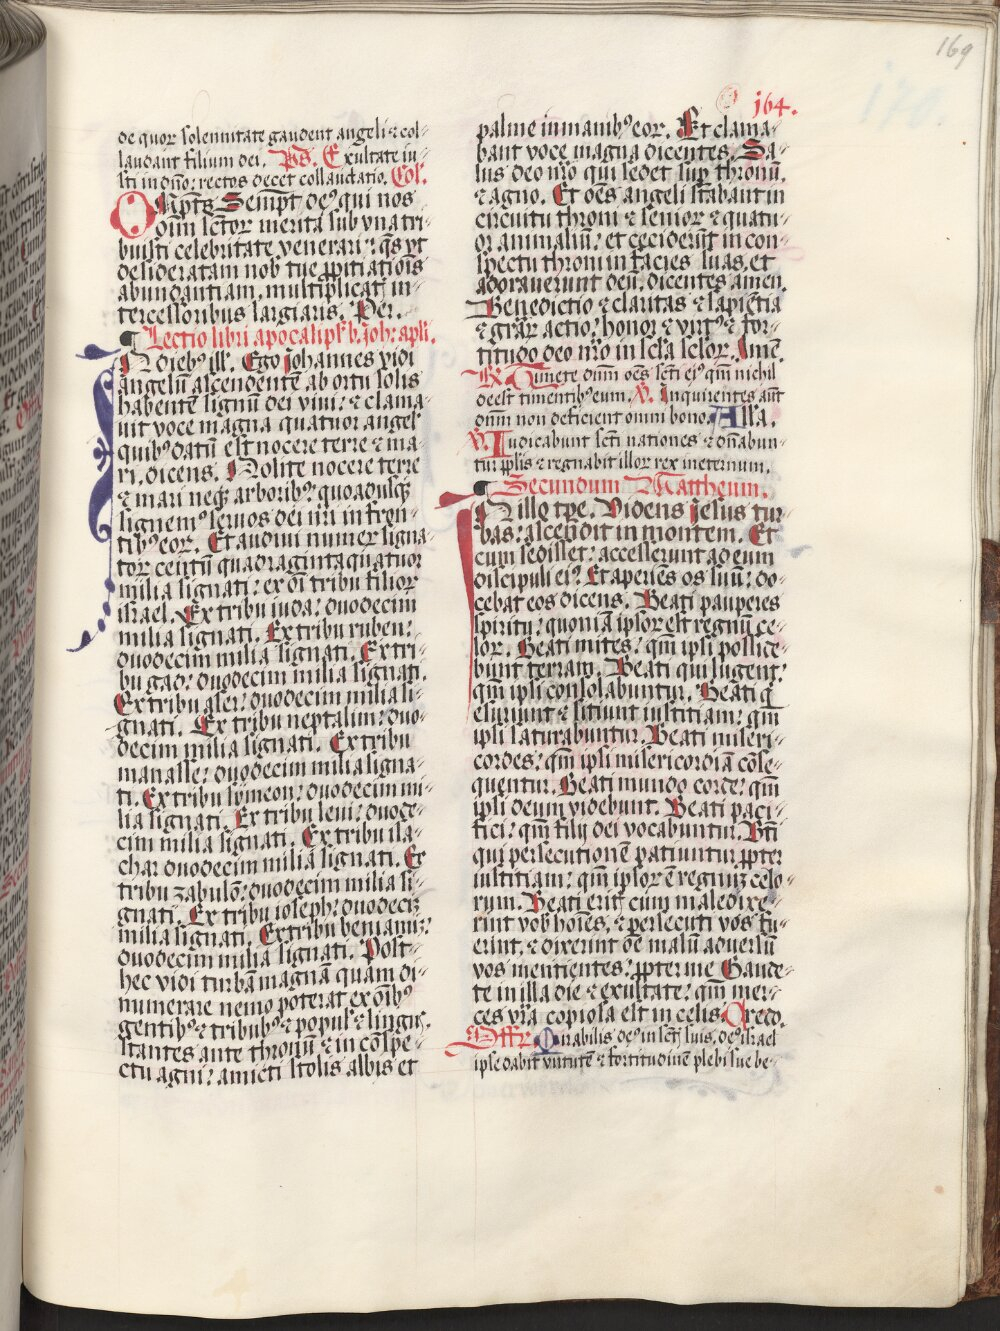 169
164.
de quor solennitate gaudent angeli ⁊ col-
laudant filium dei. Ps. Exultate iu-
sti in dño: rectos decet collaudatio. Col.
Omps Sempt̃ de⁹ qui nos
oim̃ sctor̃ merita sub vna tri-
buisti celebritate venerari: q̃s vt
desideratam nob tue ꝓpitiatiõis
abundantiam, multiplicatꝭ in-
tercessoribus largiaris. Per.
Lectio libri apocalipsꝭ b. joh: apli.
In dieb⁹ ill. Ego johannes vidi
angelũ ascendentẽ ab ortu solis
habentẽ signũ dei viui: ⁊ clama-
uit voce magna quatuor angel
quib⁹ datũ est nocere terre ⁊ ma-
ri, dicens. Nolite nocere terre
⁊ mari neqꝫ arborib⁹ quoadusqꝫ
signem⁹ seruos dei nr̃i in fron-
tib⁹ eor. Et audiui numer signa-
tor centũ quadragintaquatuor
milia signati: ex oĩ tribu filior
israel. Ex tribu iuda: duodecim
milia signati. Ex tribu ruben:
duodecim milia signati. Ex tri-
bu gad: duodecim milia signati.
Ex tribu aser: duodecim milia si-
gnati. Ex tribu neptalim: duo-
decim milia signati. Ex tribu
manasse: duodecim milia signa-
ti. Ex tribu symeon: duodecim mi-
lia signati. Ex tribu leui: duode-
cim milia signati. Ex tribu isa-
char duodecim milia signati. Ex
tribu zabulõ: duodecim milia si-
gnati. Ex tribu ioseph: duodeciꝫ
milia signati. Ex tribu beniamĩ:
duodecim milia signati. Post-
hec vidi turbã magnã quam di-
numerare nemo poterat ex oĩb⁹
gentib⁹ ⁊ tribub⁹ ⁊ popul ⁊ linguꝭ.
stantes ante thronũ ⁊ in cõspe-
ctu agni: amicti stolis albis et
palme in manib⁹ eor. Et clama-
bant voce magna dicentes. Sa-
lus deo nr̃o qui sedet suꝑ thronũ,
⁊ agno. Et oẽs angeli stabant in
circuitu throni ⁊ senior ⁊ quatu-
or animaliũ: et ceciderũt in con-
spectu throni in facies suas, et
adorauerunt deũ, dicentes amen.
Benedictio ⁊ claritas ⁊ sapiẽtia
⁊ grãr actio, honor ⁊ virt⁹ ⁊ for-
titudo deo nr̃o in scľa scľor. Amẽ.
℟ Timete dñm oẽs scti ei⁹ qm̃ nichil
deest timentib⁹ eum. ℣. Inquirentes aũt
dñm non deficient omni bono. Alla.
℣. Iudicabunt scti nationes ⁊ dñabun-
tur pplis ⁊ regnabit illor rex ineternum.
Secundum Mattheum.
In illo tꝑe. Videns jesus tur-
bas: ascendit in montem. Et
cum sedisset: accesserunt ad eum
discipuli ei⁹. Et aperiẽs os suũ: do-
cebat eos dicens. Beati pauperes
spiritu: quoniã ipsor est regnũ ce-
lor. Beati mites: qm̃ ipsi posside-
bunt terram. Beati qui lugent:
qm̃ ipsi consolabuntur. Beati q̃
esuriunt ⁊ sitiunt iustitiam: qm̃
ipsi saturabuntur. Beati miseri-
cordes: qm̃ ipsi misericordiã cõse-
quentur. Beati mundo corde: qm̃
ipsi deum videbunt. Beati paci-
fici: qm̃ filij dei vocabuntur. Bt̃i
qui persecutionẽ patiuntur ꝓpter
iustitiam: qm̃ ipsor ẽ regnuꝫ celo-
rum. Beati eritꝭ cum maledixe-
rint vob hoĩes, ⁊ persecuti vos fu-
erint, ⁊ dixerint oẽ malũ aduersũ
vos mentientes: ꝓpter me Gaude-
te in illa die ⁊ exultate: qm̃ mer-
ces vr̃a copiosa est in celis Credo.
Offr. Mirabilis de⁹ in sctꝭ suis, de⁹ israel
ipse dabit virtutẽ ⁊ fortitudinẽ plebi sue be-